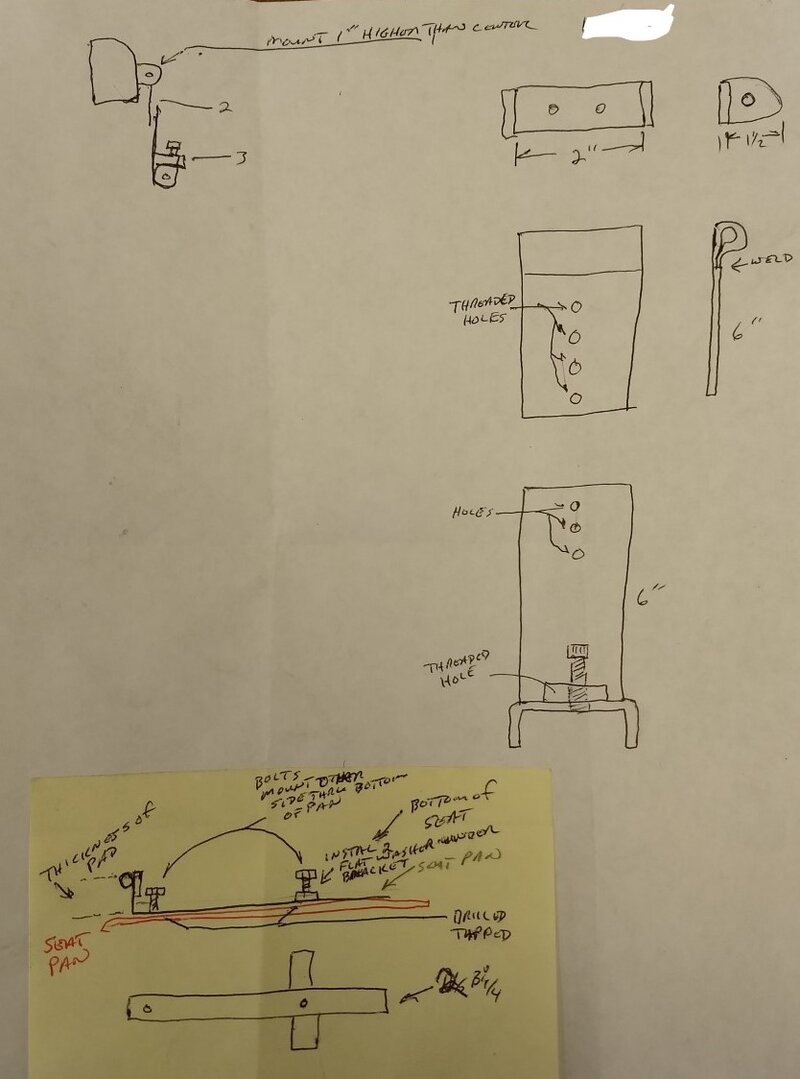 MOUNT 1" HIGHER THAN CENTER
2
3
2"
1 1/2
THREADED
HOLES
WELD
6"
HOLES
6"
THREADED
HOLE
BOLTS
MOUNT OTHER
SIDE THRU BOTTOM
OF PAN
THICKNESS OF
PAD
BOTTOM OF
SEAT
INSTAL 2
FLAT WASHER UNDER
BRACKET
SEAT PAN
SEAT
PAN
DRILLED
TAPPED